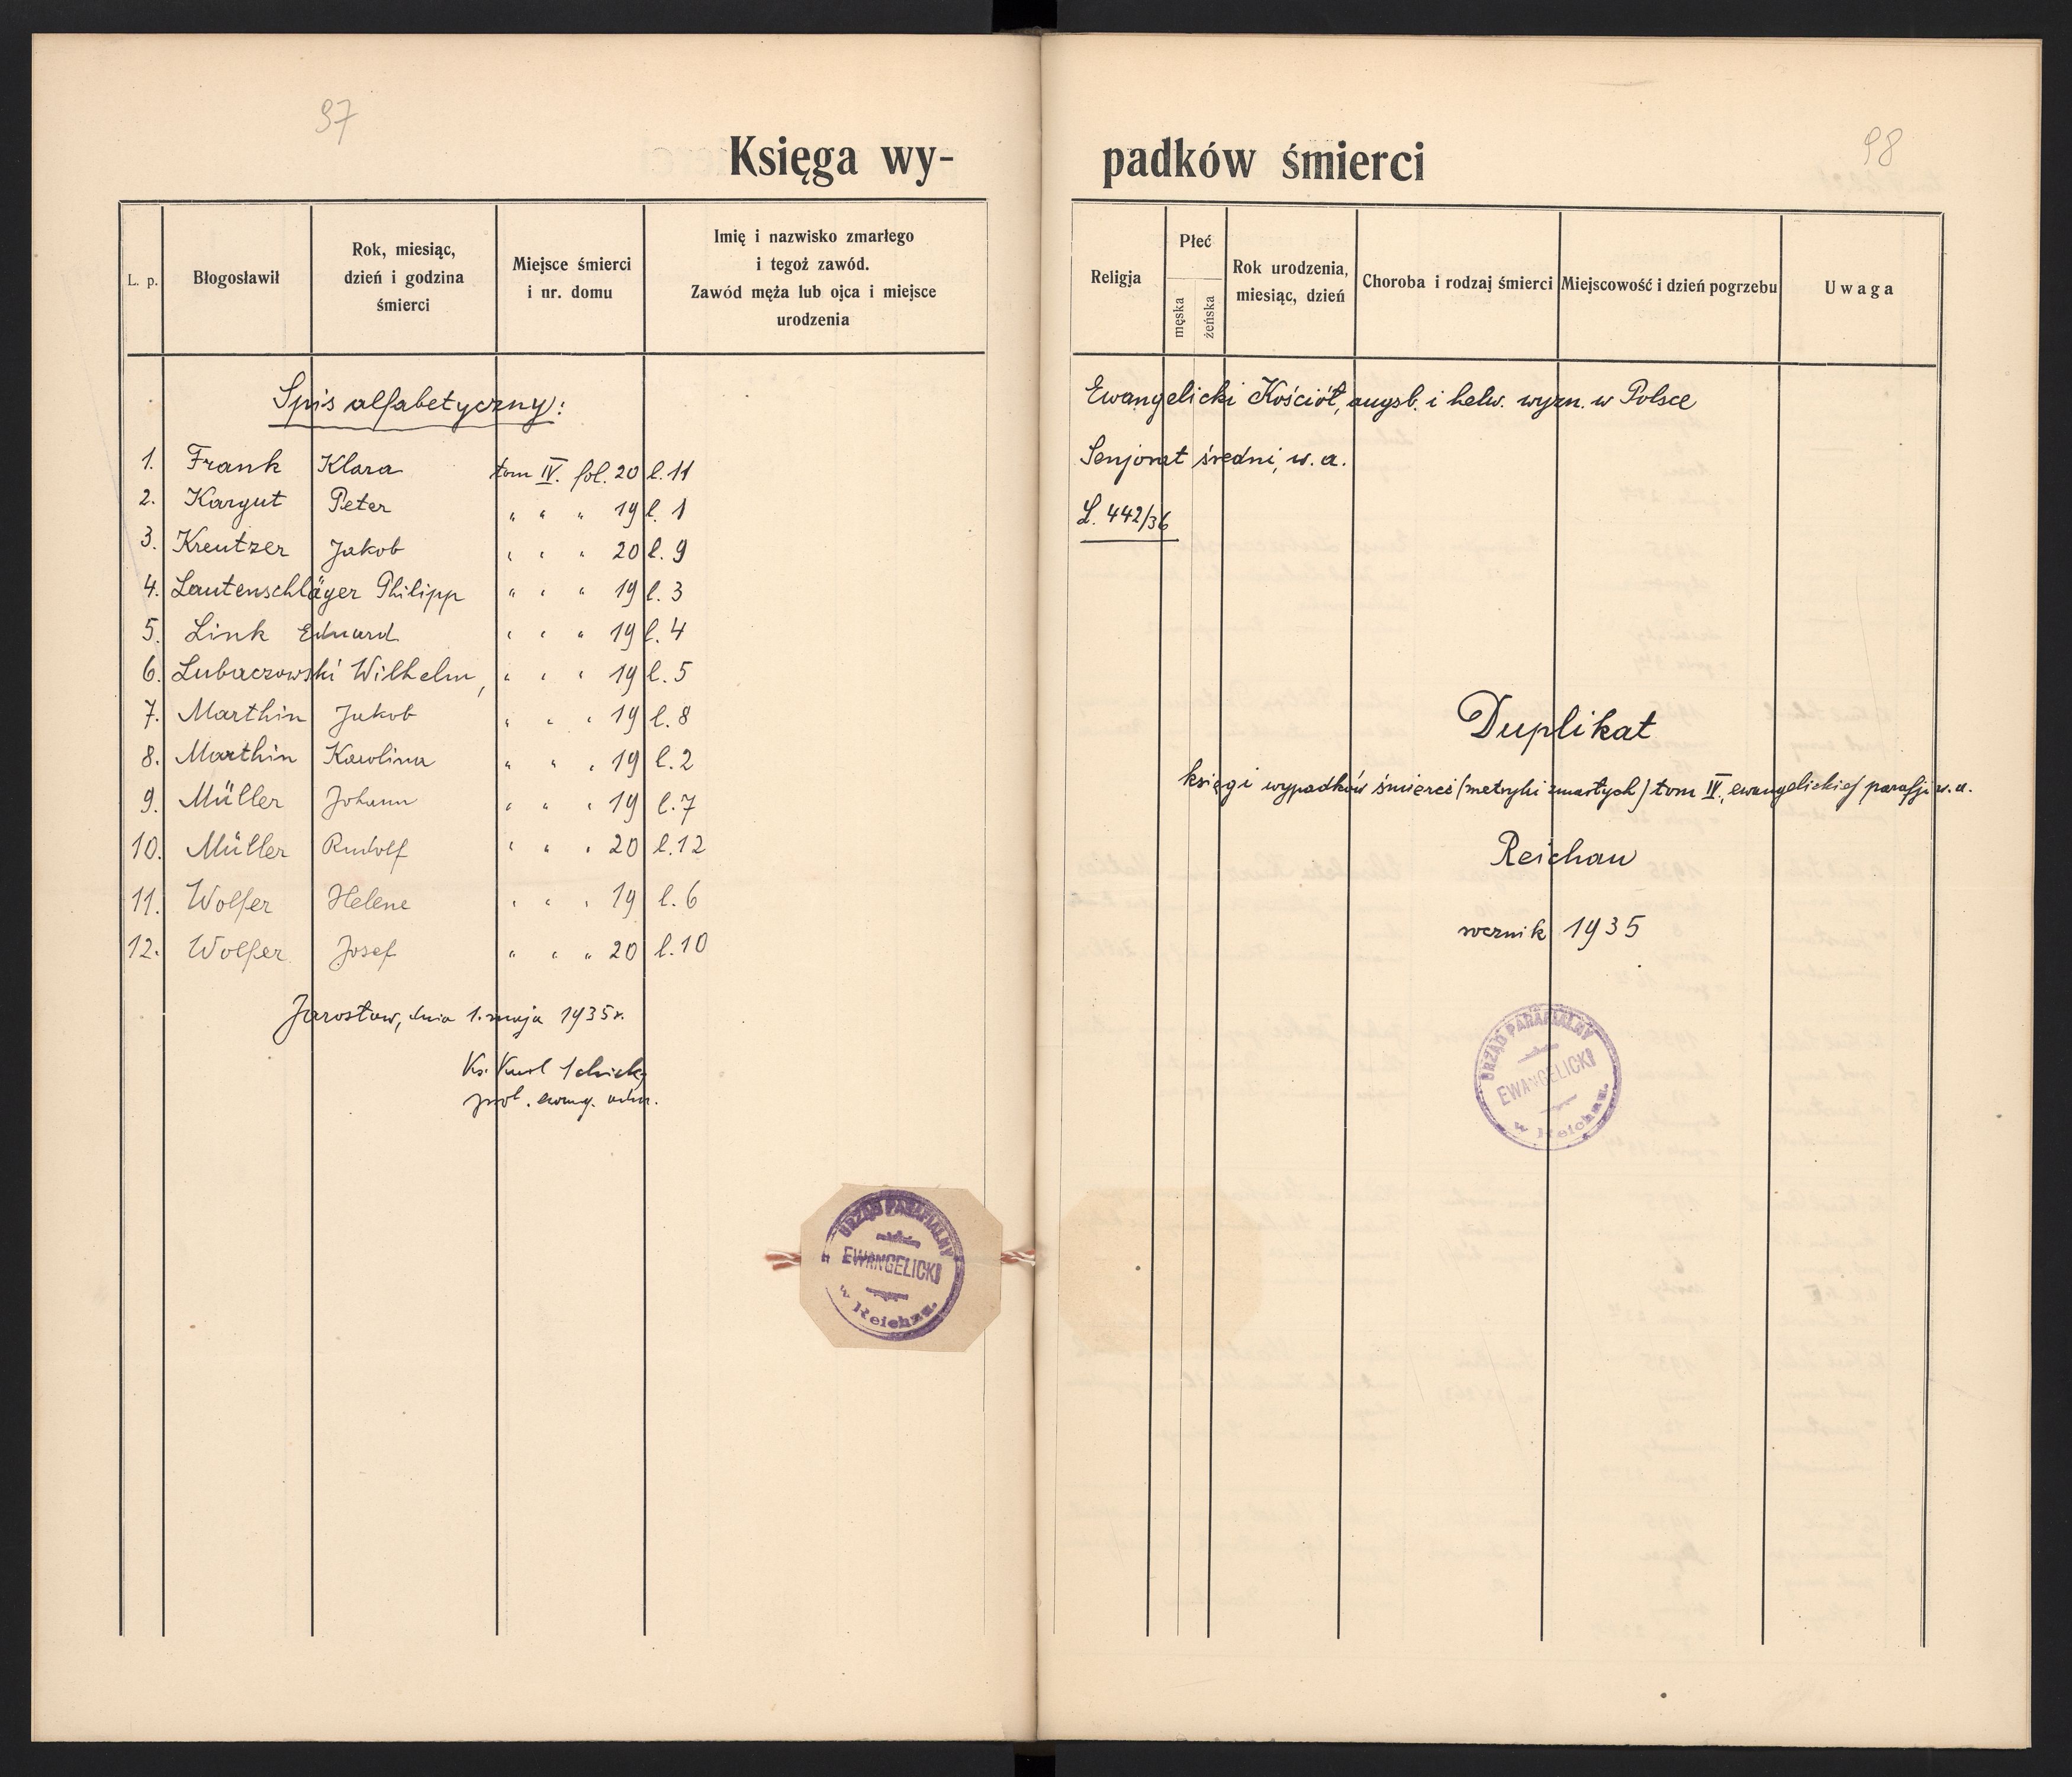 97
Księga wy-
L. p.
Błogosławił
Rok, miesiąc,
dzień i godzina
śmierci
Miejsce śmierci
i nr. domu
Imię i nazwisko zmarłego
i tegoż zawód.
Zawód męża lub ojca i miejsce
urodzenia
Spis alfabetyczny:
1. Frank Klara tom IV. fol. 20 l. 11
2. Kargut Peter " " " 19 l. 1
3. Kreutzer Jakob " " " 20 l. 9
4. Lautenschläger Philipp " " " 19 l. 3
5. Link Eduard " " " 19 l. 4
6. Lubaczowski Wilhelm, " " " 19 l. 5
7. Marthin Jakob " " " 19 l. 8
8. Marthin Karolina " " " 19 l. 2
9. Müller Johann " " " 19 l. 7
10. Müller Rudolf " " " 20 l. 12
11. Wolfer Helene " " " 19 l. 6
12. Wolfer Josef " " " 20 l. 10
Jarosław, dnia 1. maja 1935 r.
Ks. Karl
ewang.
URZĄD PARAFIALNY
EWANGELICKI
w Reichau.
98
padków śmierci
Religja
Płeć
męska
żeńska
Rok urodzenia,
miesiąc, dzień
Choroba i rodzaj śmierci
Miejscowość i dzień pogrzebu
Uwaga
Ewangelicki Kościół, augsb. i helw. wyzn. w Polsce
Senjorat średni, w. a.
L. 442/36
Duplikat
księgi wypadków śmierci (metryki zmarłych) tom IV., ewangelickiej parafji w. a.
Reichau
rocznik 1935
URZĄD PARAFIALNY
EWANGELICKI
w Reichau.